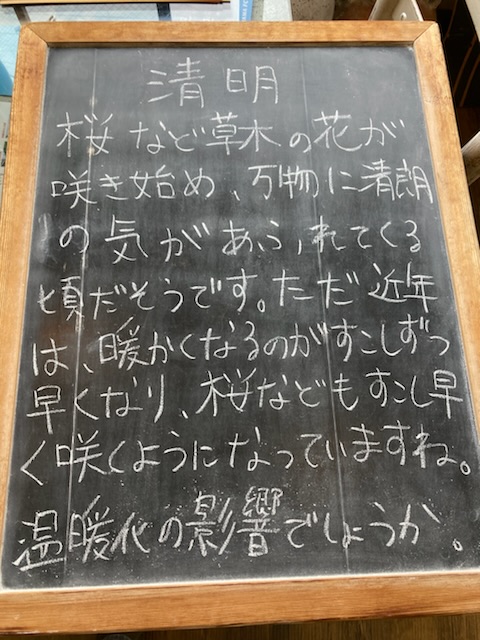 清明
桜など草木の花が
咲き始め、万物に清朗
の気があふれてくる
頃だそうです。ただ近年
は、暖かくなるのがすこしずつ
早くなり、桜などもすこし早
く咲くようになっていますね。
温暖化の影響でしょうか。